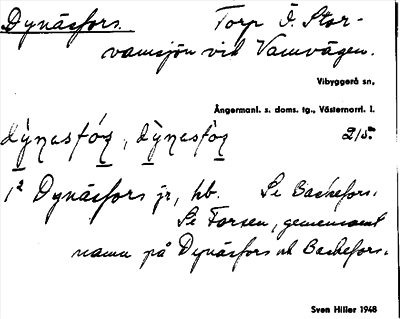 Dynäsfors. Torp Ö. Stor-
vamsjön vid Vamvägen.
Vibyggerå sn,
Ångermanl. s. doms. tg., Västernorrl. l.
1² Dynäsfors jr, hb. Se Backefors.
Se Forsen, gemensamt
namn på Dynäsfors och Backefors.
Sven Hiller 1948